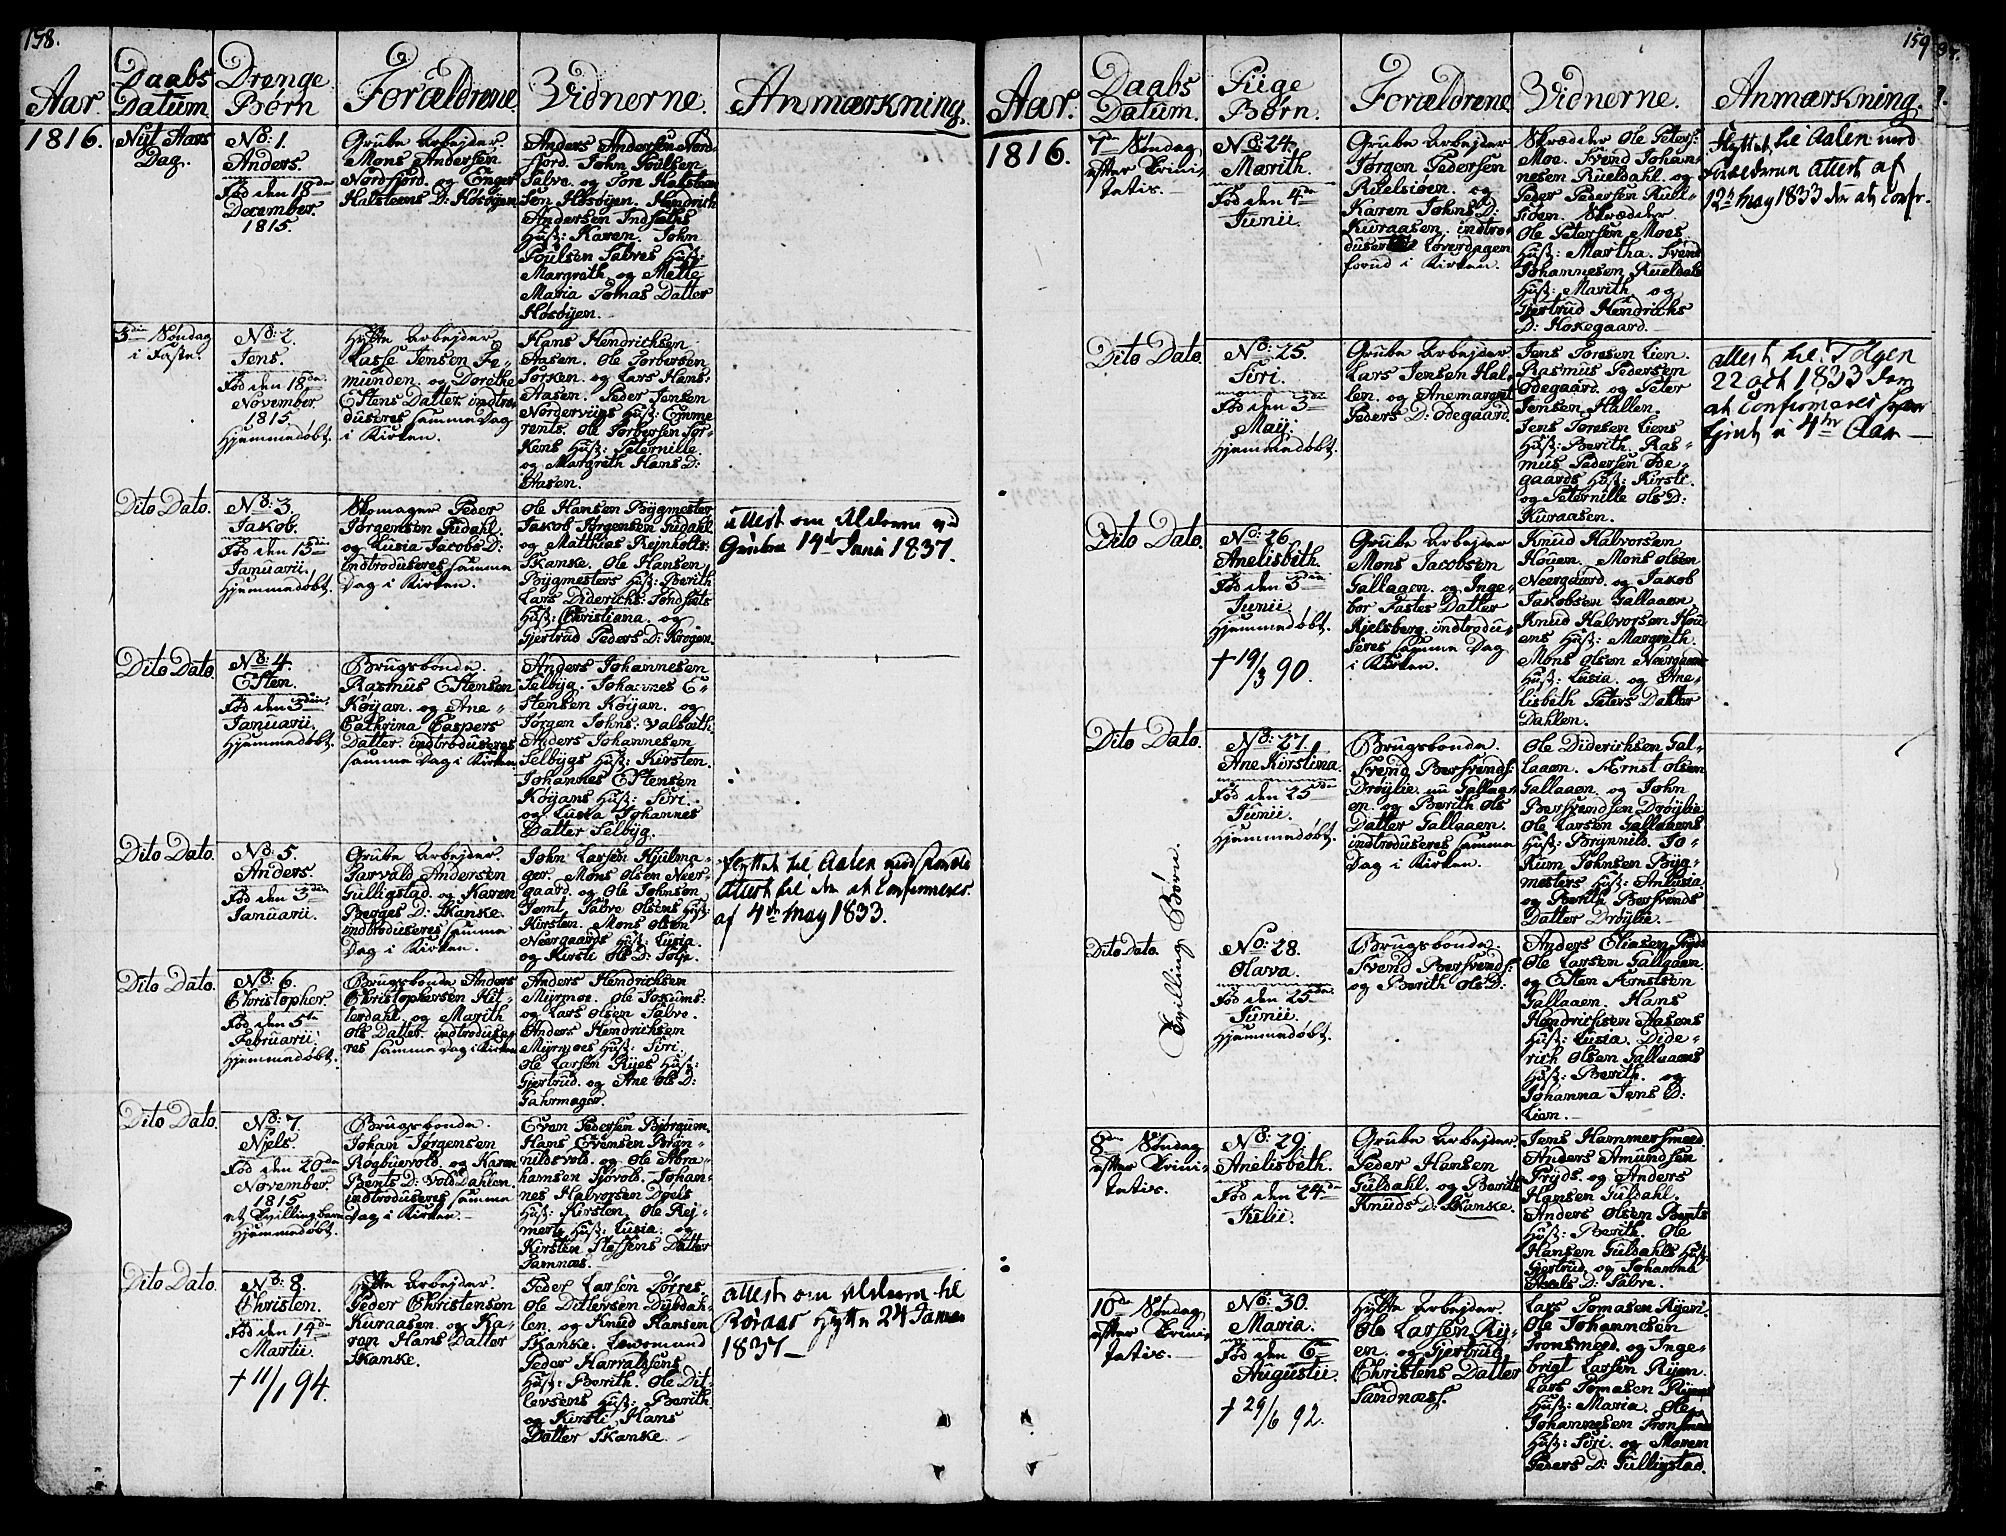 158.
Aar
Daabs Datum.
Drenge Børn
Forældrene
Vidnerne.
Anmærkning.
1816.
Nyt Aars
Dag.
No: 1.
Anders.
Fød den 18de
December.
1815.
Grube Arbejder
Mons Andersen
Nordfjord. og Enger
Halsteens D: Høsöyen
Anders Andersen Nord-
fjord. John Poulsen
Salve. og Tore Halsteen
sen Høsöyen. Hendrich
Andersen Indsætts
Huß: Karen. John
Poulsen Salves Huß:
Margreth. og Mette
Maria Tomas Datter
Høsöyen.
3die Søndag
i Faste.
No: 2.
Jens.
Fød den 18de
November
1815.
Hjemmedøbt.
Hytte Arbejder
Lasse Jensen Fe-
munden. og Dorethe
Estens Datter. indtro-
duseres samme Dag
i Kirken.
Hans Hendrichsen
Aasen. Ole Torbersen
Sorken. og Lars Hans:
Aasen. Peder Jensen
Nordervigs Huß: Emme
rents. Ole Torbersen Sor-
Kens Huß: Peternille.
og Margreth Hans D:
Aasen.
Dito Dato.
No: 3.
Jakob.
Fød den 13de
Januarii.
Hjemmedøbt.
Skomager Peder
Jørgensen Sudahl.
og Lusia Jacobs D:
indtroduseres samme
Dag i Kirken.
Ole Hansen Bygmester
Jakob Jørgensen Sudahl
og Matthias Rejnholts:
Skanke. Ole Hansen
Bygmesters Huß: Berith.
Lars Diderichs: Tøndsets
Huß: Christiana. og
Gjertrud Peders D: Krogen.
attest om Alderen ved
Gruben 14de Juni 1837.
Dito Dato.
No: 4.
Esten.
Fød den 3die
Januarii.
Hjemmedøbt.
Brugsbonde.
Rasmus Estensen
Køyan. og Ane-
Cathrina Caspers
Datter. indtroduseres
samme Dag i Kirken
Anders Johannesen
Selbyg. Johannes E-
stensen Køyan. og
Jørgen Johns: Valsøith.
Anders Johannesen
Selbygs Huß: Kirsten.
Johannes Estensen
Køyans Huß: Siri.
og Lusia Johannes
Datter Selbyg.
Dito Dato.
No: 5.
Anders.
Fød den 3die
Januarii.
Grube Arbejder.
Tarvald Andersen
Gulligstad. og Karen
Berges D: Skanke.
indtroduseres samme
Dag i Kirken.
John Larsen Hjulma-
ger. Mons Olsen Neer-
gaard. og Ole Johnsen
Jemt. Salve Olsens Huß:
Kirsten. Mons Olsen
Neergaards Huß: Lusia.
og Kirsti Ols D: Tolje.
flyttet til Aalen med
attest til der at Confirmeres.
af 4de May 1833.
Dito Dato.
No: 6.
Christopher.
Fød den 5te
Februarii.
Hjemmedøbt.
Brugsbonde Anders
Christophersen Hit-
terdahl. og Marith
Ols Datter. indtroduse-
res samme Dag i Kirken
Anders Hendrichsen
Myrmoe. Ole Jokums:
og Lars Olsen Salve.
Anders Hendrichsen
Myrmoes Huß: Siri.
Ole Larsen Ryes Huß:
Gjertrud. og Ane Ols D:
Gahrmager.
Dito Dato.
No: 7.
Njels.
Fød den 20de
November.
1815.
et Tvillingbarn
Hjemmedøbt.
Brugsbonde.
Johan Jørgensen
Rogbuevold. og Karen
Bents D: VoldDahlen.
indtroduseres samme
Dag i Kirken.
Even Pedersen Bjørguum.
Hans Evensen Bryn-
nildsvold. og Ole Abra-
hamsen Sjøvold. Johan-
nes Halvorsen Doels
Huß: Kirsten. Ole Rej-
merts Huß: Lusia. og
Kirsten Steffens Datter
Samnæs.
Dito Dato.
No: 8.
Christen.
Fød den 14de
Martii.
† 11/1 94.
Hytte Arbejder.
Peder Christensen
Kuraasen. og Ka-
ren Hans Datter
Skanke.
Peder Larsen Dørres.
Ole Ditlevsen Dybdah-
len. og Knud Hansen
Skanke. Lensmand
Peder Harraldsens
Huß: Berith. Ole Dit-
levsens Huß: Berith
og Kirsti Hans
Datter Skanke.
attest om Alderen til
Røraas Hytte 24 Januar
1837
159
Aar.
Daabs Datum.
Piige Børn.
Forældrene
Vidnerne.
Anmærkning.
1816.
7de Søndag
efter Trini-
tatis.
No: 24.
Marith.
Fød den 4de
Junii.
Grube Arbejder
Jørgen Pedersen
Ruelsien. og
Karen Johns D:
Kuraasen. indtro-
duseres Løverdagen
forud i Kirken.
Skrædder Ole Peters:
Moe. Svend Johan-
nesen Rueldahl. og
Peder Pedersen Ruel-
sien. Skrædder
Ole Petersen Moes
Huß: Martha. Svend
Johannesen Rueldals
Huß: Marith. og
Gjertrud Hendrichs
D: Hokegaard.
flyttet til Aalen med
Forældrene Attest af
12te May 1833 der at Confr.
Dito Dato.
No: 25.
Siri.
Fød den 3die
Maij.
Hjemmedøbt.
Grube Arbejder
Lars Jensen Hal-
len. og Anemargret
Peders D: Ødegaard.
Jens Joresen Lien.
Rasmus Pedersen
Ødegaard. og Peter
Jensen Hallen.
Jens Joresen Liens
Huß: Berith. Ras-
mus Pedersen Øde-
gaards Huß: Kirsti.
og Peternille Ols D:
Kuraasen.
attest til Tolgen
22 Oct 1833 der
at Confirmeres
tjent i 4re Aar
Dito Dato.
No: 26.
Anelisbeth.
Fød den 3die
Junii.
Hjemmedøbt.
† 19/3 90.
Grube Arbejder
Mons Jacobsen
Gallagen. og Inge-
bor Fastes Datter
Kjelsberg. indtrodu-
seres samme Dag
i Kirken.
Knud Halvorsen
Houen. Mons Olsen
Neergaard. og Jakob
Jakobsen Gallaaen
Knud Halvorsen Hou-
ens Huß: Margreth.
Mons Olsen Neergaards
Huß: Lusia. og Ane-
lisbeth Peters Datter
Dahlen.
Dito Dato.
No: 27.
Ane Kirstina.
Fød den 25de
Junii.
Hjemmedøbt.
Brugsbonde.
Svend Bersvends:
Drøylie. nu Gallaa-
en. og Berith Ols
Datter Gallaaen.
indtroduseres samme
Dag i Kirken.
Ole Diderichsen Gal-
laaen. Arnst Olsen
Gallaaen. og John
Bersvendsen Drøylie
Ole Larsen Gallaaens
Huß: Brynnild. Jo-
Kum Johnsen Byg-
mesters Huß: Anlusia.
og Berith Bersvends
Datter Drøylie.
Tvilling Børn.
Dito Dato.
No: 28.
Olava.
Fød den 25de
Junii.
Hjemmedøbt.
Brugsbonde.
Svend Bersvends:
og Berith Ols D:
Anders Eliasen Pryds
Ole Larsen Gallaaen.
og Esten Arnstsen
Gallaaen. Hans
Hendrichsen Aasens
Huß: Lusia. Dide-
rich Olsen Gallaaens
Huß: Berith. og
Johanna Jens D:
Lien.
8de Søndag
efter Trini-
tatis.
No: 29.
Anelisbeth.
Fød den 24de
Julii.
Grube Arbejder
Peder Hansen
Guldahl. og Berith
Knuds D: Skanke.
Jens Hammersmeed
Anders Amundsen
Pryds. og Anders
Hansen Guldahl.
Anders Olsen Bents
Huß: Berith. Ole
Hansen Guldahls Huß:
Gjertrud. og Johanna
D: Salve.
10de Søndag
efter Trini-
tatis.
No: 30.
Maria.
Fød den 6te
Augustii.
† 29/6 92.
Hytte Arbejder.
Ole Larsen Ry-
en. og Gjertrud
Christens Datter
Sandnæss.
Lars Tomasen Ryen.
Ole Johannesen
Tronsmoed. og Inge-
brigt Larsen Ryen.
Lars Tomasen Ryens
Huß: Maria. Ole
Johannesen Tronsmoed
Huß: Siri. og Maren
Peders D: Gulligstad.